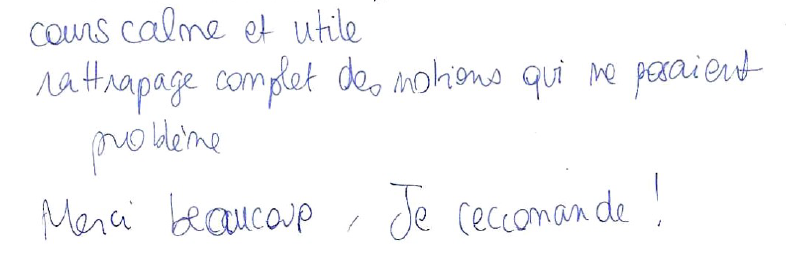 cours calme et utile
rattrapage complet des notions qui me posaient
problème
Merci beaucoup, Je reccomande !